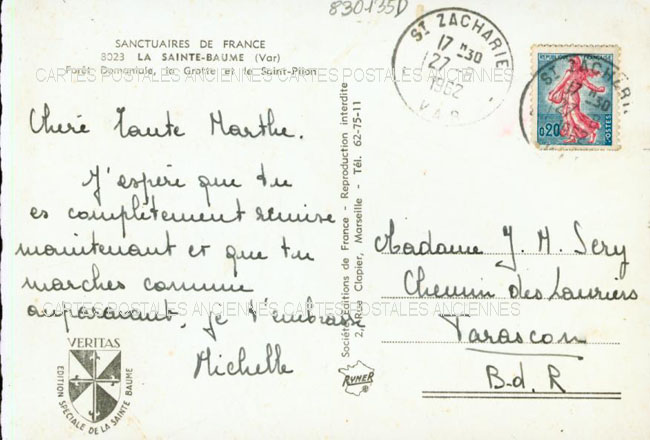 830135D
SANCTUAIRES DE FRANCE
8023 LA SAINTE-BAUME (Var)
Forêt Domaniale, la Grotte et le Saint-Pilon
CARTES POSTALES ANCIENNES CARTES POSTALES ANCIENNES
Cheré Tante Marthe.
J'espère que tu
es complètement remise
maintenant et que tu
marches comme
auparavant. Je t'embrasse
Michelle
CARTES POSTALES ANCIENNES CARTES POSTALES ANCIENNES
VERITAS
EDITION SPECIALE DE LA SAINTE BAUME
Société Editions de France - Reproduction interdite
2, Rue Clapier, Marseille - Tél. 62-75-11
RYNER
ST ZACHARIE
17 H 30
27
1962
VAR
ST ZACHARIE
17 H 30
0,20
POSTES
Madame J. M. Sery
Chemin des Lauriers
Tarascon
B.d.R